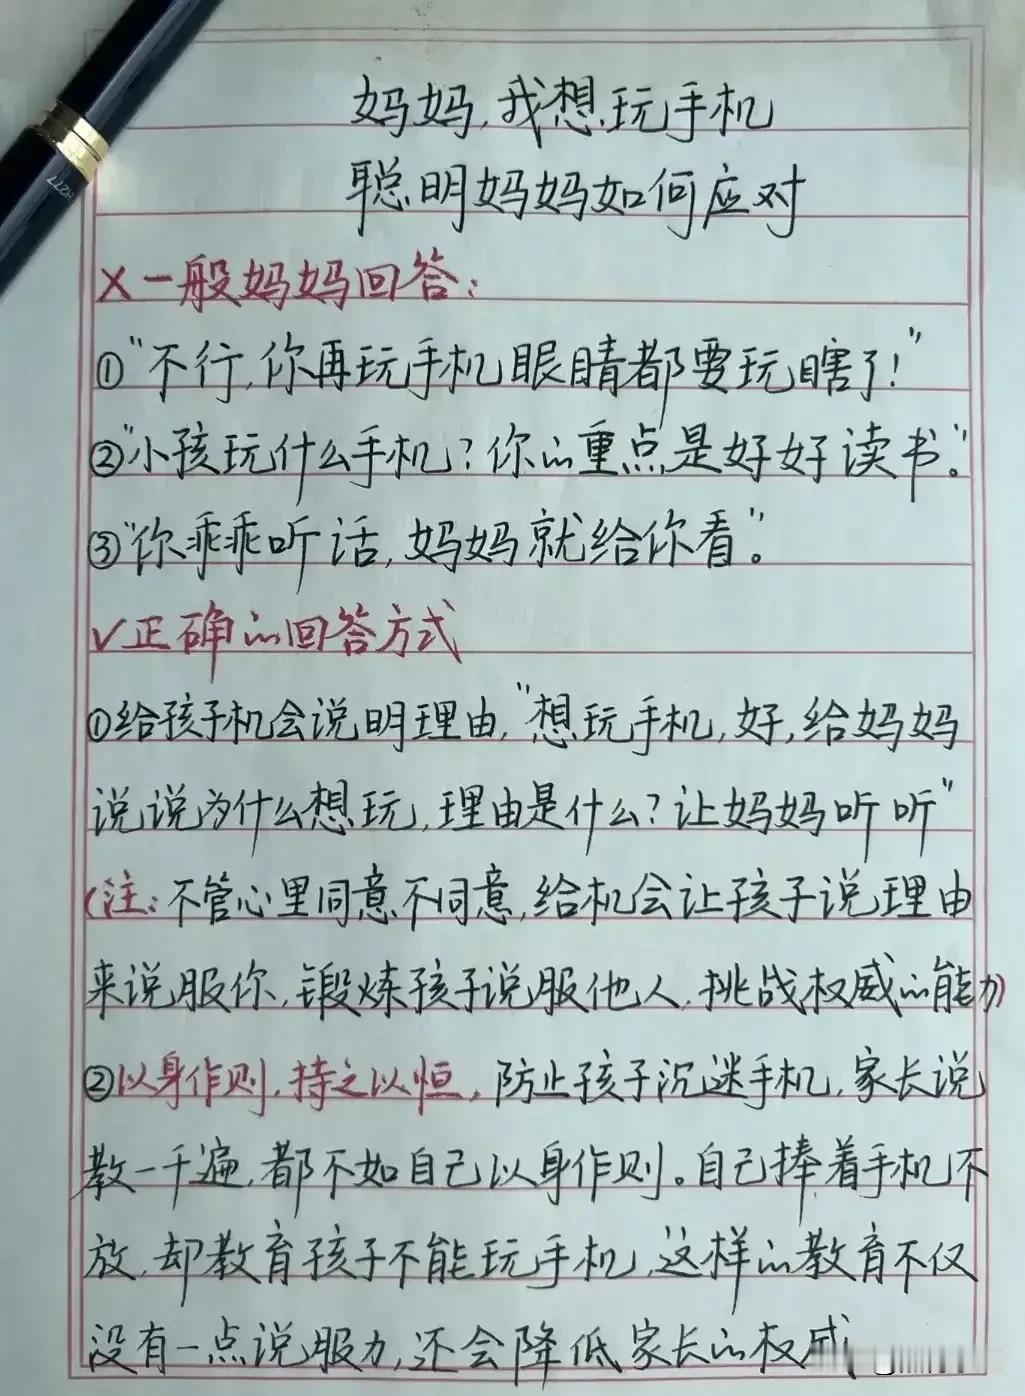 H277
妈妈,我想玩手机
聪明妈妈如何应对
×一般妈妈回答:
①"不行,你再玩手机眼睛都要玩瞎了!"
②"小孩玩什么手机?你的重点是好好读书。"
③"你乖乖听话,妈妈就给你看"。
√正确的回答方式
①给孩子机会说明理由,"想玩手机,好,给妈妈
说说为什么想玩,理由是什么?让妈妈听听"
(注:不管心里同意不同意,给机会让孩子说理由
来说服你,锻炼孩子说服他人,挑战权威的能力)
②以身作则,持之以恒,防止孩子沉迷手机,家长说
教一千遍,都不如自己以身作则。自己捧着手机不
放,却教育孩子不能玩手机,这样的教育不仅
没有一点说服力,还会降低家长的权威